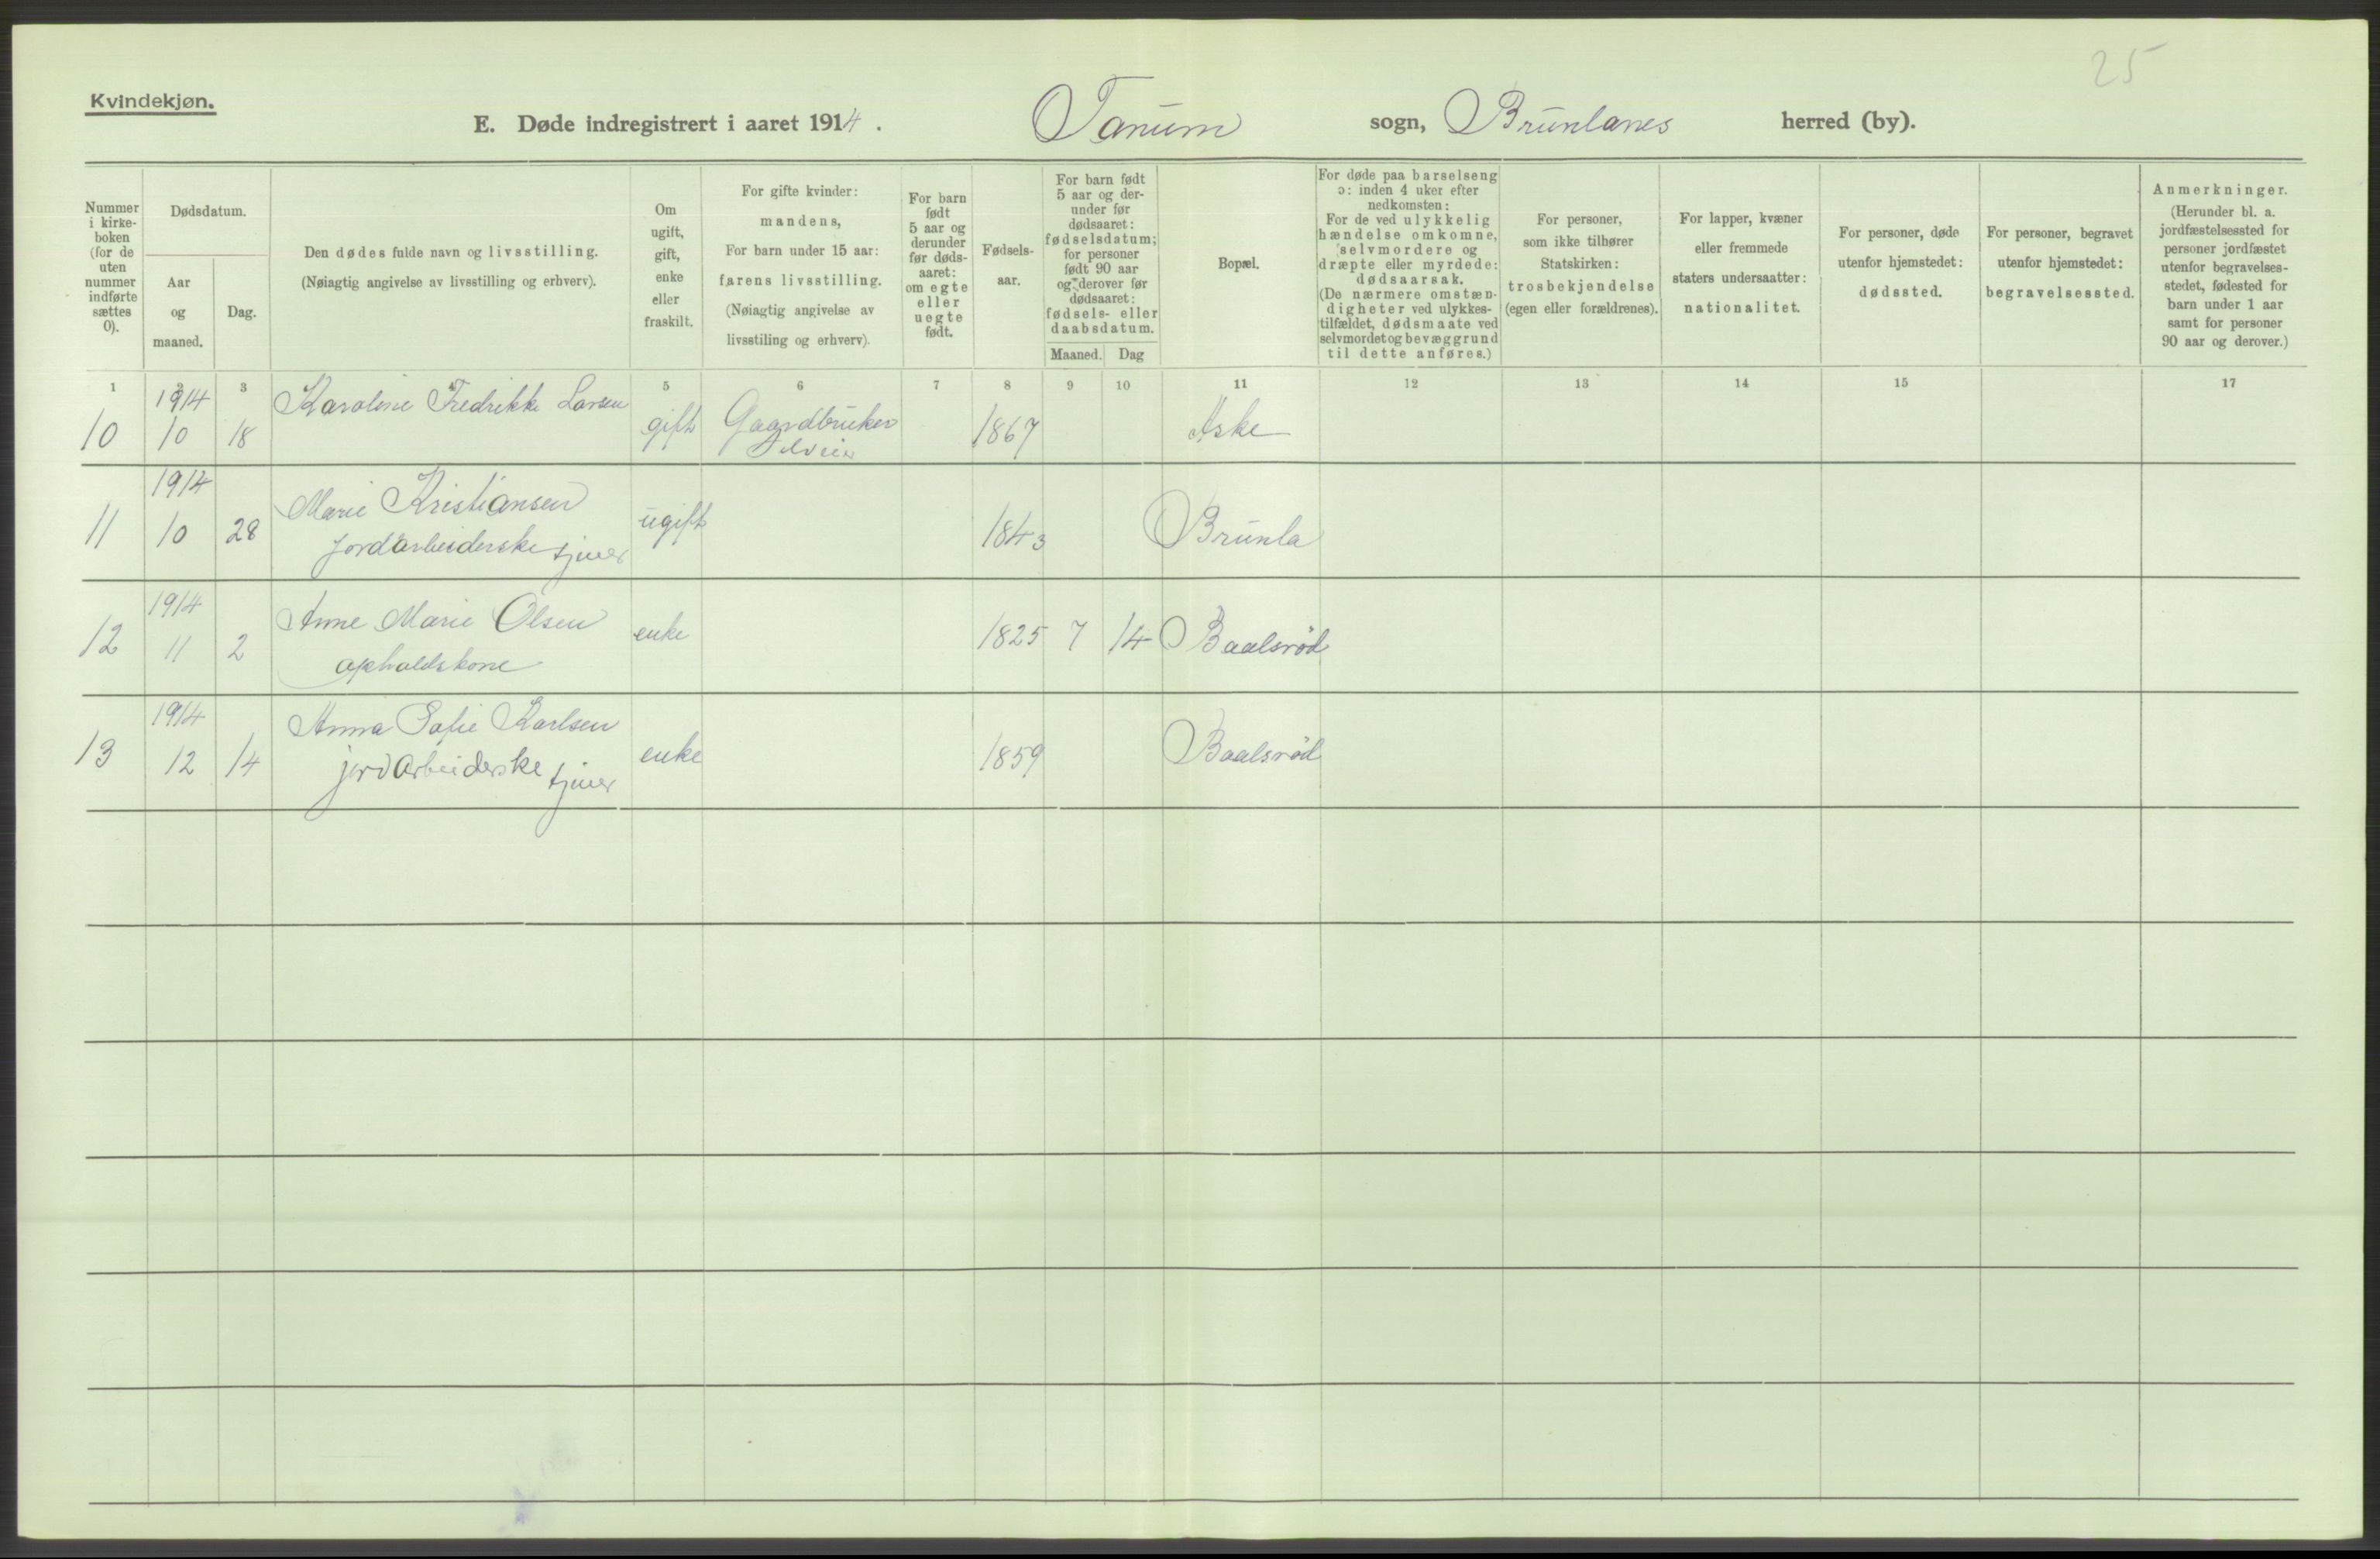 25
Kvindekjøn.
E. Døde indregistrert i aaret 1914. Tanum sogn, Brunlanes herred (by).
Nummer i kirke-boken (for de uten nummer indførte sættes 0).
Dødsdatum.
Aar og maaned.
Dag.
Den dødes fulde navn og livsstilling.
(Nøiagtig angivelse av livsstilling og erhverv).
Om ugift, gift, enke eller fraskilt.
For gifte kvinder:
mandens,
For barn under 15 aar:
farens livsstilling.
(Nøiagtig angivelse av
livsstiling og erhverv).
For barn født 5 aar og derunder før døds-aaret: om egte eller uegte født.
Fødsels-aar.
For barn født
5 aar og der-
under før
dødsaaret:
fødselsdatum;
for personer
født 90 aar
og derover før
dødsaaret:
fødsels- eller
daabsdatum.
Maaned. Dag
Bopæl.
For døde paa barselseng
ɔ: inden 4 uker efter
nedkomsten:
For de ved ulykkelig
hændelse omkomne,
selvmordere og
dræpte eller myrdede:
dødsaarsak.
(De nærmere omstæn-
digheter ved ulykkes-
tilfældet, dødsmaate ved
selvmordet og bevæggrund
til dette anføres.)
For personer,
som ikke tilhører
Statskirken:
trosbekjendelse
(egen eller forældrenes).
For lapper, kvæner
eller fremmede
staters undersaatter:
nationalitet.
For personer, døde
utenfor hjemstedet:
dødssted.
For personer, begravet
utenfor hjemstedet:
begravelsessted.
Anmerkninger.
(Herunder bl. a.
jordfæstelsessted for
personer jordfæstet
utenfor begravelses-
stedet, fødested for
barn under 1 aar
samt for personer
90 aar og derover.)
1 2 3 4 5 6 7 8 9 10 11 12 13 14 15 17
1914 Karoline Fredrikke Larsen
10 10 18 gift Gaardbruker 1867 Aske
1914
11 10 28 Marie Kristiansen ugift 1843 Brunla
jordarbeiderske tjener
1914
12 11 2 Anne Marie Olsen enke 1825 7 14 Baalsröd
opholdskone
1914
13 12 14 Anna Sofie Karlsen enke 1859 Baalsröd
jordarbeiderske tjener